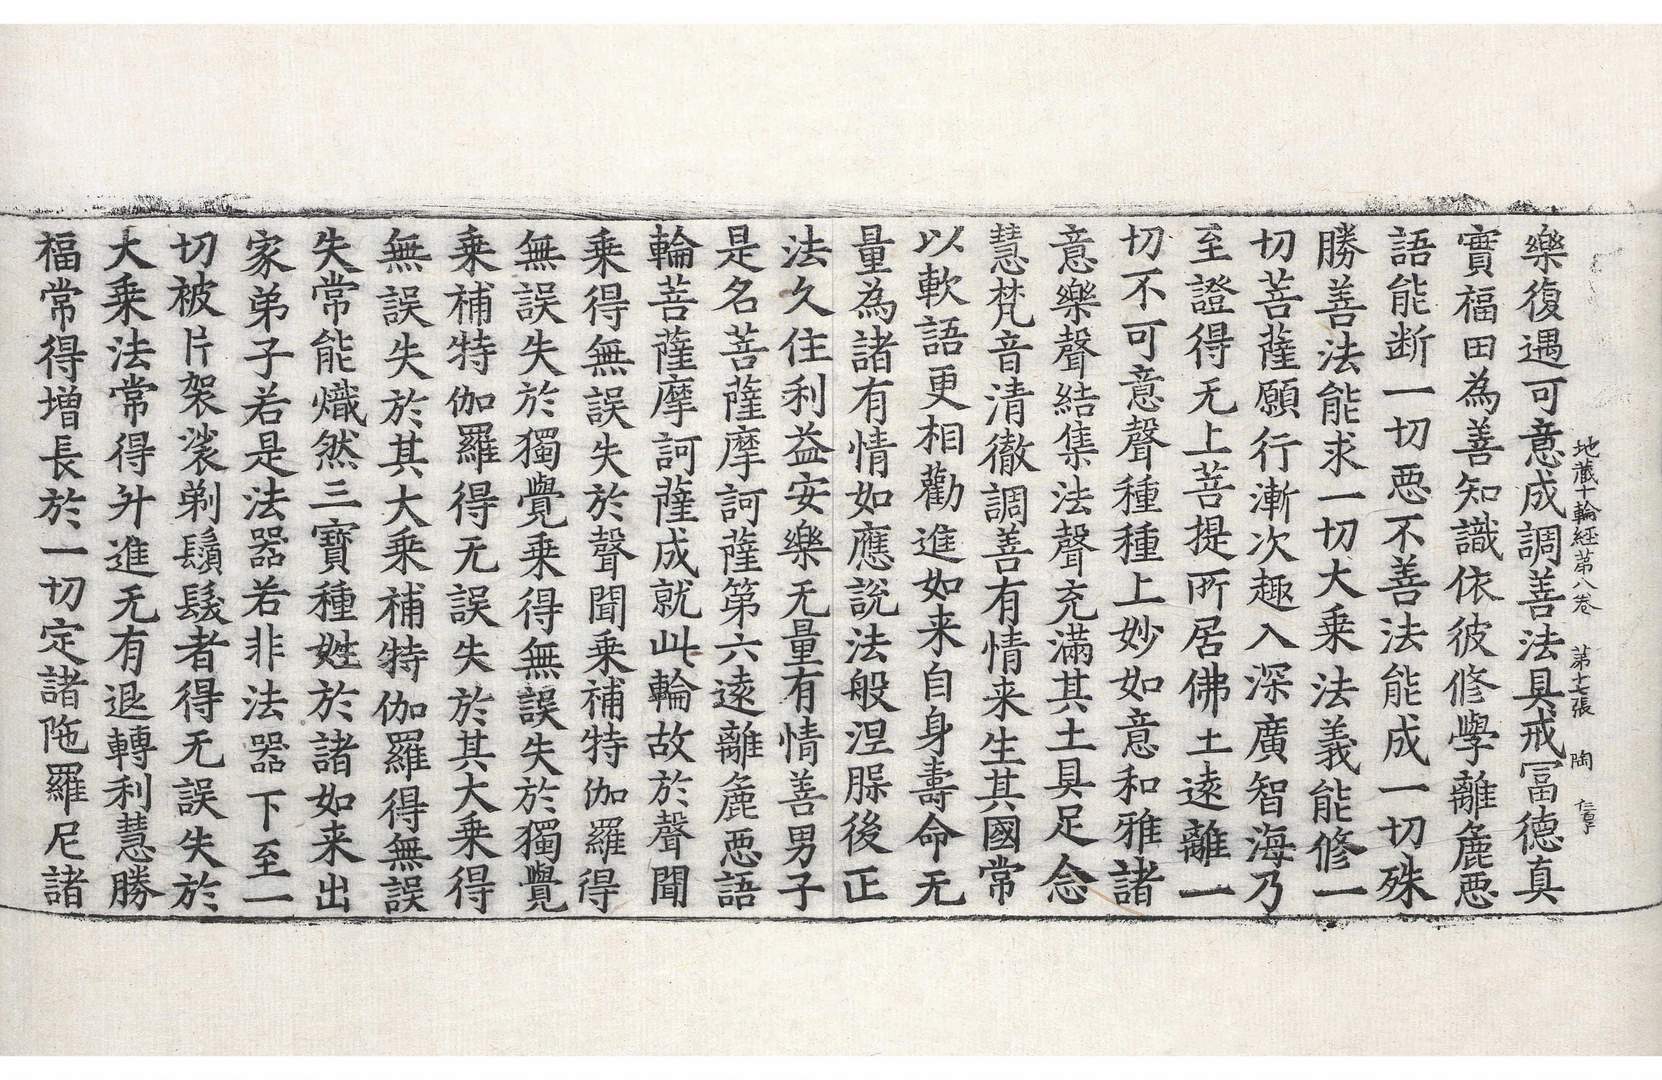 地藏十輪経苐八卷　苐十七張　陶
樂復遇可意成調善法具戒冨德真
實福田為善知識依彼修學離麁惡
語能断一切惡不善法能成一切殊
勝善法能求一切大乗法義能修一
切菩薩願行漸次趣入深廣智海乃
至證得无上菩提所居佛土遠離一
切不可意聲種種上妙如意和雅諸
意樂聲結集法聲充滿其土具足念
慧梵音清徹調善有情来生其國常
以軟語更相勸進如来自身壽命无
量為諸有情如應說法般涅脲後正
法久住利益安樂无量有情善男子
是名菩薩摩訶薩第六遠離麁惡語
輪菩薩摩訶薩成就此輪故於聲聞
乗得無誤失於聲聞乗補特伽羅得
無誤失於獨覺乗得無誤失於獨覺
乗補特伽羅得无誤失於其大乗得
無誤失於其大乗補特伽羅得無誤
失常能熾然三寶種姓於諸如来出
家弟子若是法器若非法器下至一
切被片袈裟剃鬚髮者得无誤失於
大乗法常得升進无有退轉利慧勝
福常得增長於一切定諸陁羅尼諸